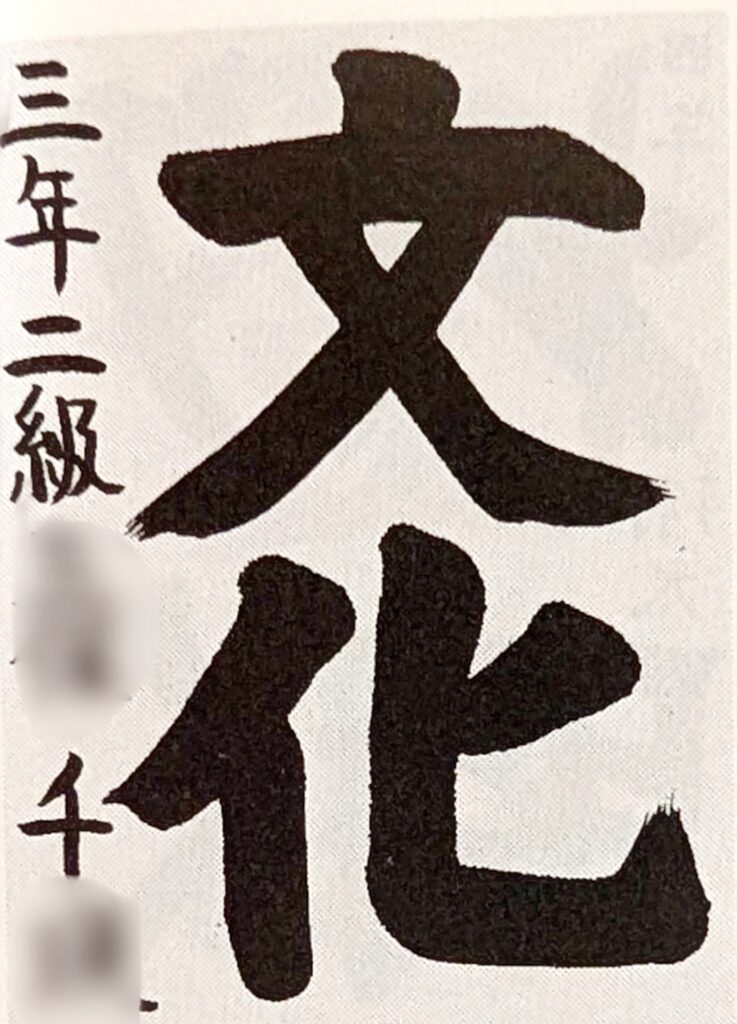 文化
三年二級 千